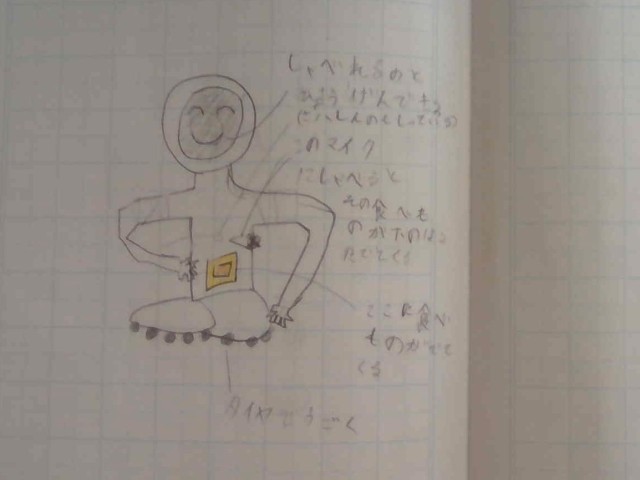 しゃべれるのと
ひょうげんできる
にほんのもしっている
このマイク
にしゃべると
その食べも
のが下のほう
たでてくる
ここに食べ
ものがでて
くる
タイヤでうごく